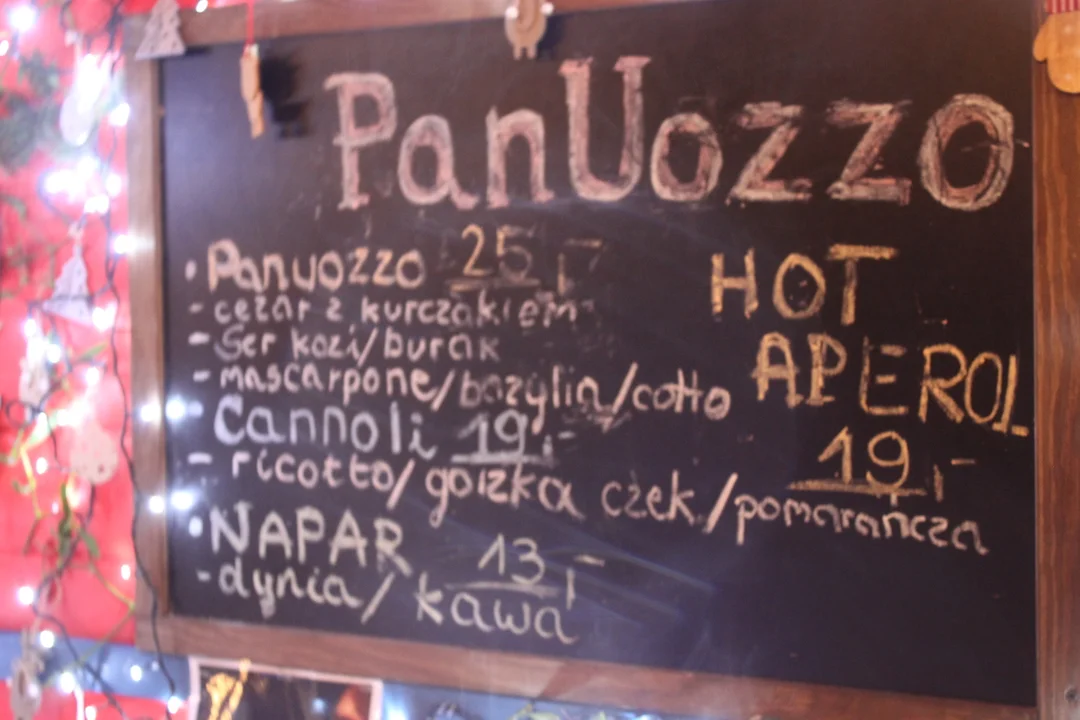 PanUozzo
• Panuozzo 25,-
- cezar z kurczakiem
- Ser kozi/burak
- mascarpone/bazylia/cotto
Cannoli 19,-
- ricotto/gorzka czek./pomarańcza
• NAPAR 13,-
- dynia/kawa
HOT
APEROL
19,-